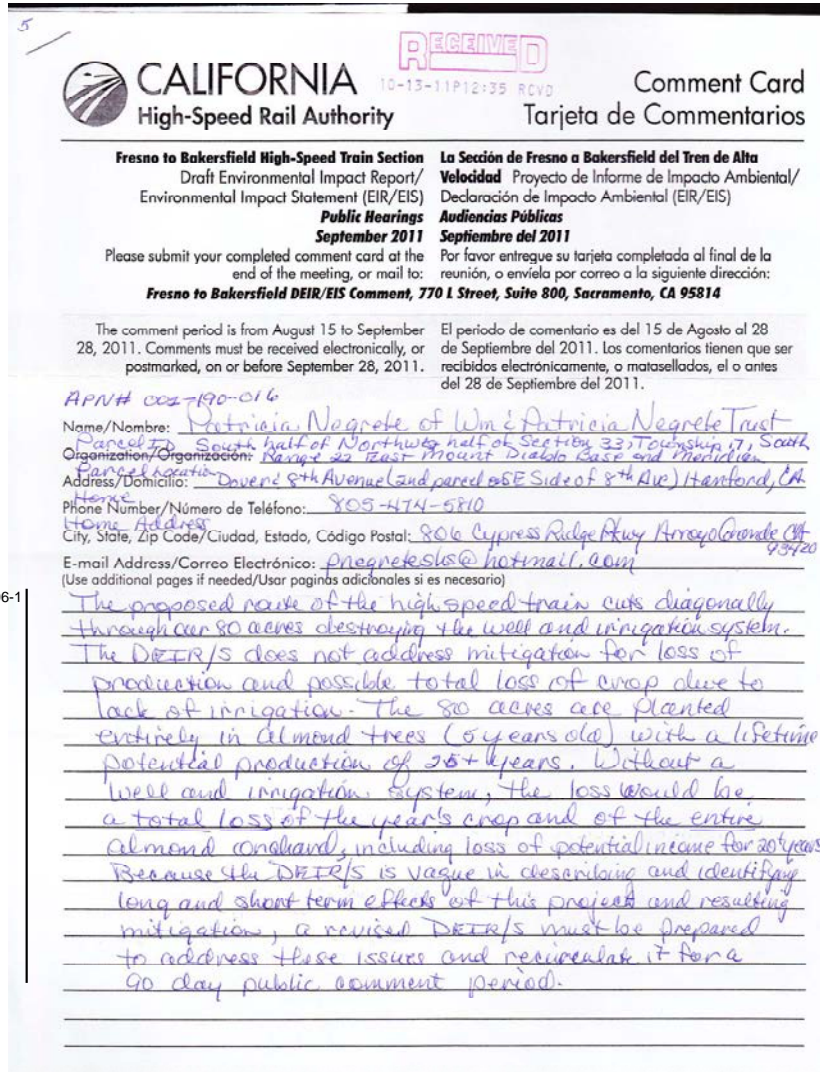 5
RECEIVED
10-13-11P12:35 RCVD
CALIFORNIA
High-Speed Rail Authority
Comment Card
Tarjeta de Commentarios
Fresno to Bakersfield High-Speed Train Section
Draft Environmental Impact Report/
Environmental Impact Statement (EIR/EIS)
Public Hearings
September 2011
Please submit your completed comment card at the
end of the meeting, or mail to:
La Sección de Fresno a Bakersfield del Tren de Alta
Velocidad Proyecto de Informe de Impacto Ambiental/
Declaración de Impacto Ambiental (EIR/EIS)
Audiencias Públicas
Septiembre del 2011
Por favor entregue su tarjeta completada al final de la
reunión, o envíela por correo a la siguiente dirección:
Fresno to Bakersfield DEIR/EIS Comment, 770 L Street, Suite 800, Sacramento, CA 95814
The comment period is from August 15 to September
28, 2011. Comments must be received electronically, or
postmarked, on or before September 28, 2011.
El periodo de comentario es del 15 de Agosto al 28
de Septiembre del 2011. Los comentarios tienen que ser
recibidos electrónicamente, o matasellados, el o antes
del 28 de Septiembre del 2011.
APN# 002-190-016
Name/Nombre: Patricia Negrete of Wm & Patricia Negrete Trust
Parcel ID South half of Northwest half of Section 33, Township 17, South
Organization/Organización: Range 22 East Mount Diablo Base and Meridian
Parcel Location
Address/Domicilio: Dover & 8th Avenue (2nd parcel SE Side of 8th Ave) Hanford, CA
Home
Phone Number/Número de Teléfono: 805-474-5810
Home Address
City, State, Zip Code/Ciudad, Estado, Código Postal: 806 Cypress Ridge Pkwy Arroyo Grande CA
93420
E-mail Address/Correo Electrónico: pnegreteslo@hotmail.com
(Use additional pages if needed/Usar paginas adicionales si es necesario)
6-1
The proposed route of the high speed train cuts diagonally
through our 80 acres destroying the well and irrigation system.
The DEIR/S does not address mitigation for loss of
production and possible total loss of crop due to
lack of irrigation. The 80 acres are planted
entirely in almond trees (5 years old) with a lifetime
potential production of 25+ years. Without a
well and irrigation system, the loss would be
a total loss of the year's crop and of the entire
almond orchard, including loss of potential income for 20+ years
Because the DEIR/S is vague in describing and identifying
long and short term effects of this project and resulting
mitigation, a revised DEIR/S must be prepared
to address these issues and recirculate it for a
90 day public comment period.